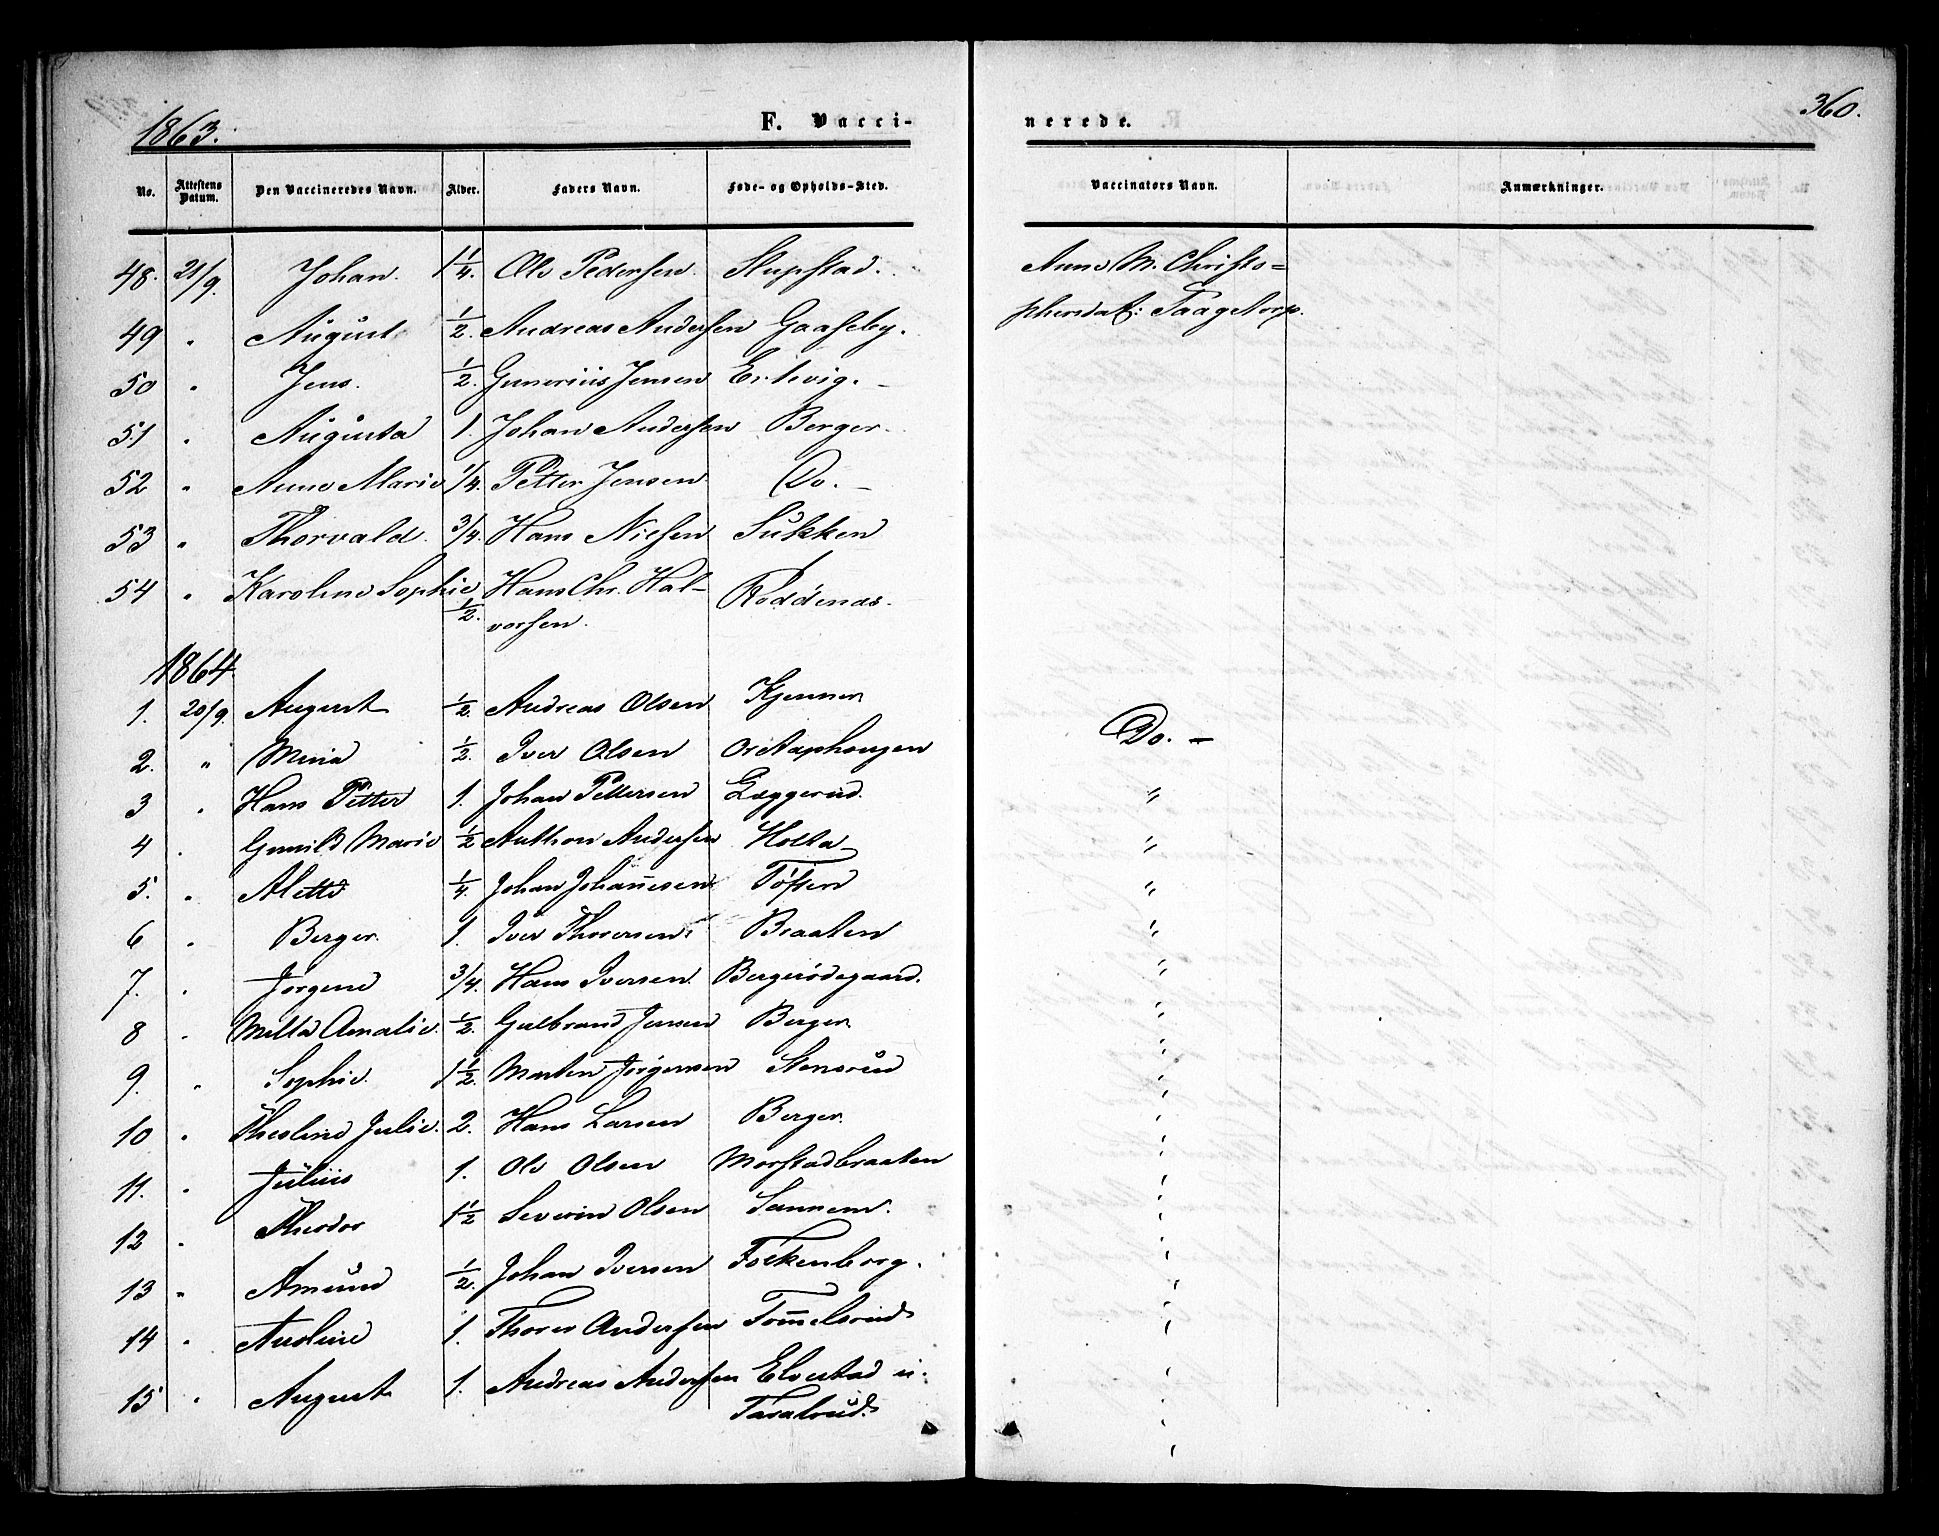 360.
1863.
F. Vacci-
nerede.
No. Attestens Datum. Den Vaccineredes Navn. Alder. Faders Navn. Føde- og Opholds-Sted. Vaccinators Navn. Anmærkninger.
48. 21/9. Johan. 1 1/4. Ole Pedersen Slupstad. Anne M. Christo=
49 " August 1/2. Andreas Andersen Gaaseby. phersdat:
50 " Jens. 1/2. Gunerius Jensen Ertevig. -
51 " Augusta 1. Johan Andersen Berger.
52 " Anne Marie 1/4. Petter Jensen Do. -
53 " Thorvald. 3/4. Hans Nielsen Sukken
54 " Karoline Sophie 1/2. Hans Chr. Hal-
vorsen. Roddenæs.
1864
1. 20/9. August 1/2. Andreas Olsen Kjenner
2. " Mina 1/2. Iver Olsen Do. -
3 " Hans Petter 1. Johan Pettersen Læggerud. "
4 " Gunild Marie 1/2 Anthon Andersen Holta "
5. " Alette 1/4. Johan Johannesen Tøfsen "
6 " Berger. 1. Iver Thoresen Braaten "
7. " Jørgene 3/4. Hans Iversen Bergerødegaard. "
8 " Milla Amalie. 1/2. Gulbrand Jensen Berger "
9. " Sophie. 1 1/2. Morten Jørgensen Stensrud "
10 " Julie. 2. Hans Larsen Berger. "
11. " Julius 1. Ole Olsen Morstadbraaten "
12 " Theodor 1 1/2 Severin Olsen Sannem. "
13 " Amund 1/2. Johan Iversen Falkenborg. "
14 " Auoline 1. Thorer Andersen Tommelsrud "
15 " August 1. Andreas Andersen Elvestad u.
Taralrud. "